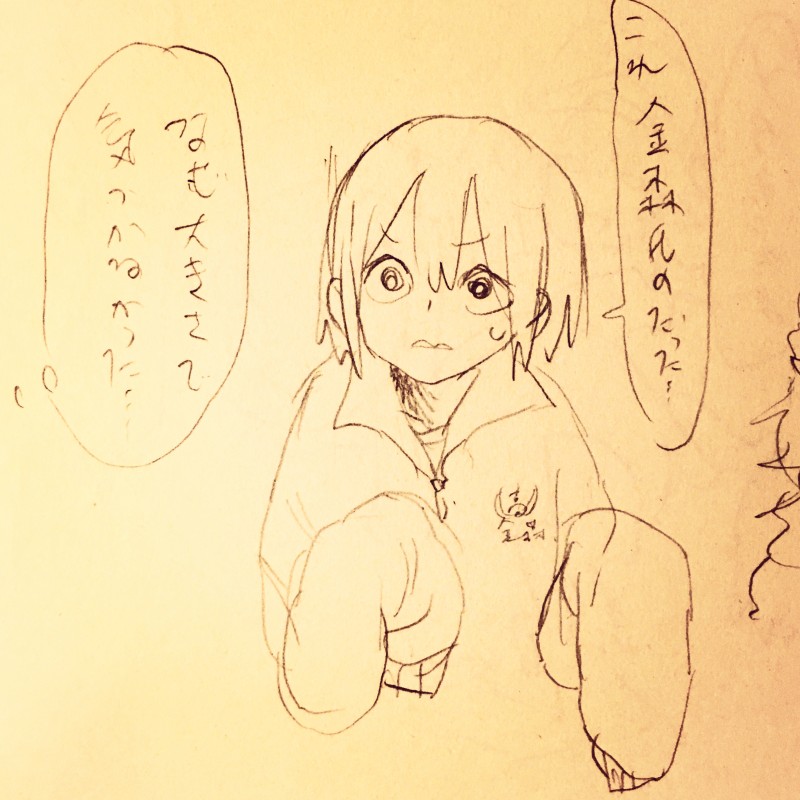 これ金森氏のだった…
なぜ大きさで
気づかなかった…
金森